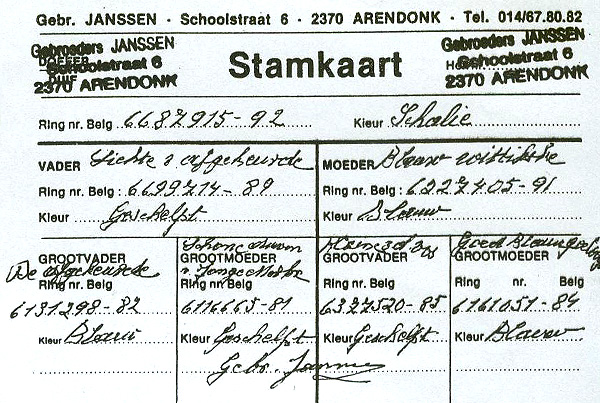 Gebr. JANSSEN - Schoolstraat 6 - 2370 ARENDONK - Tel. 014/67.80.82
Gebroeders JANSSEN
Schoolstraat 6
2370 ARENDONK
Stamkaart
Gebroeders JANSSEN
Schoolstraat 6
2370 ARENDONK
Ring nr. Belg 6687915-92 Kleur Schalie
VADER Lichte v afgekeurde
Ring nr. Belg : 6699714-89
Kleur Geschelpt
MOEDER Blauw wittikske
Ring nr. Belg : 6227405-91
Kleur Blauw
GROOTVADER
De afgekeurde
Ring nr. Belg
6131298-82
Kleur Blauw
Schone
GROOTMOEDER
v. Jonge
Ring nr. Belg
6116665-81
Kleur Geschelpt
GROOTVADER
Ring nr. Belg
6327520-85
Kleur Geschelpt
Goed Blauw
GROOTMOEDER
Ring nr. Belg
6161051-84
Kleur Blauw
Gebr. Janssen